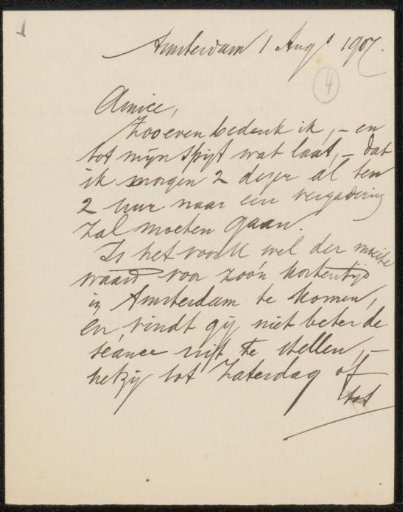 Amsterdam 1 Aug 1907.
4
Amice,
Zooeven bedenk ik, – en
tot mijn spijt wat laat, – dat
ik morgen 2 dezer al ten
2 uur naar een vergadering
zal moeten gaan.
Is het voor U wel der moeite
waard voor zoon korten tijd
in Amsterdam te komen,
en vindt gij niet beter de
seance uit te stellen, –
hetzij tot Zaterdag of
tot